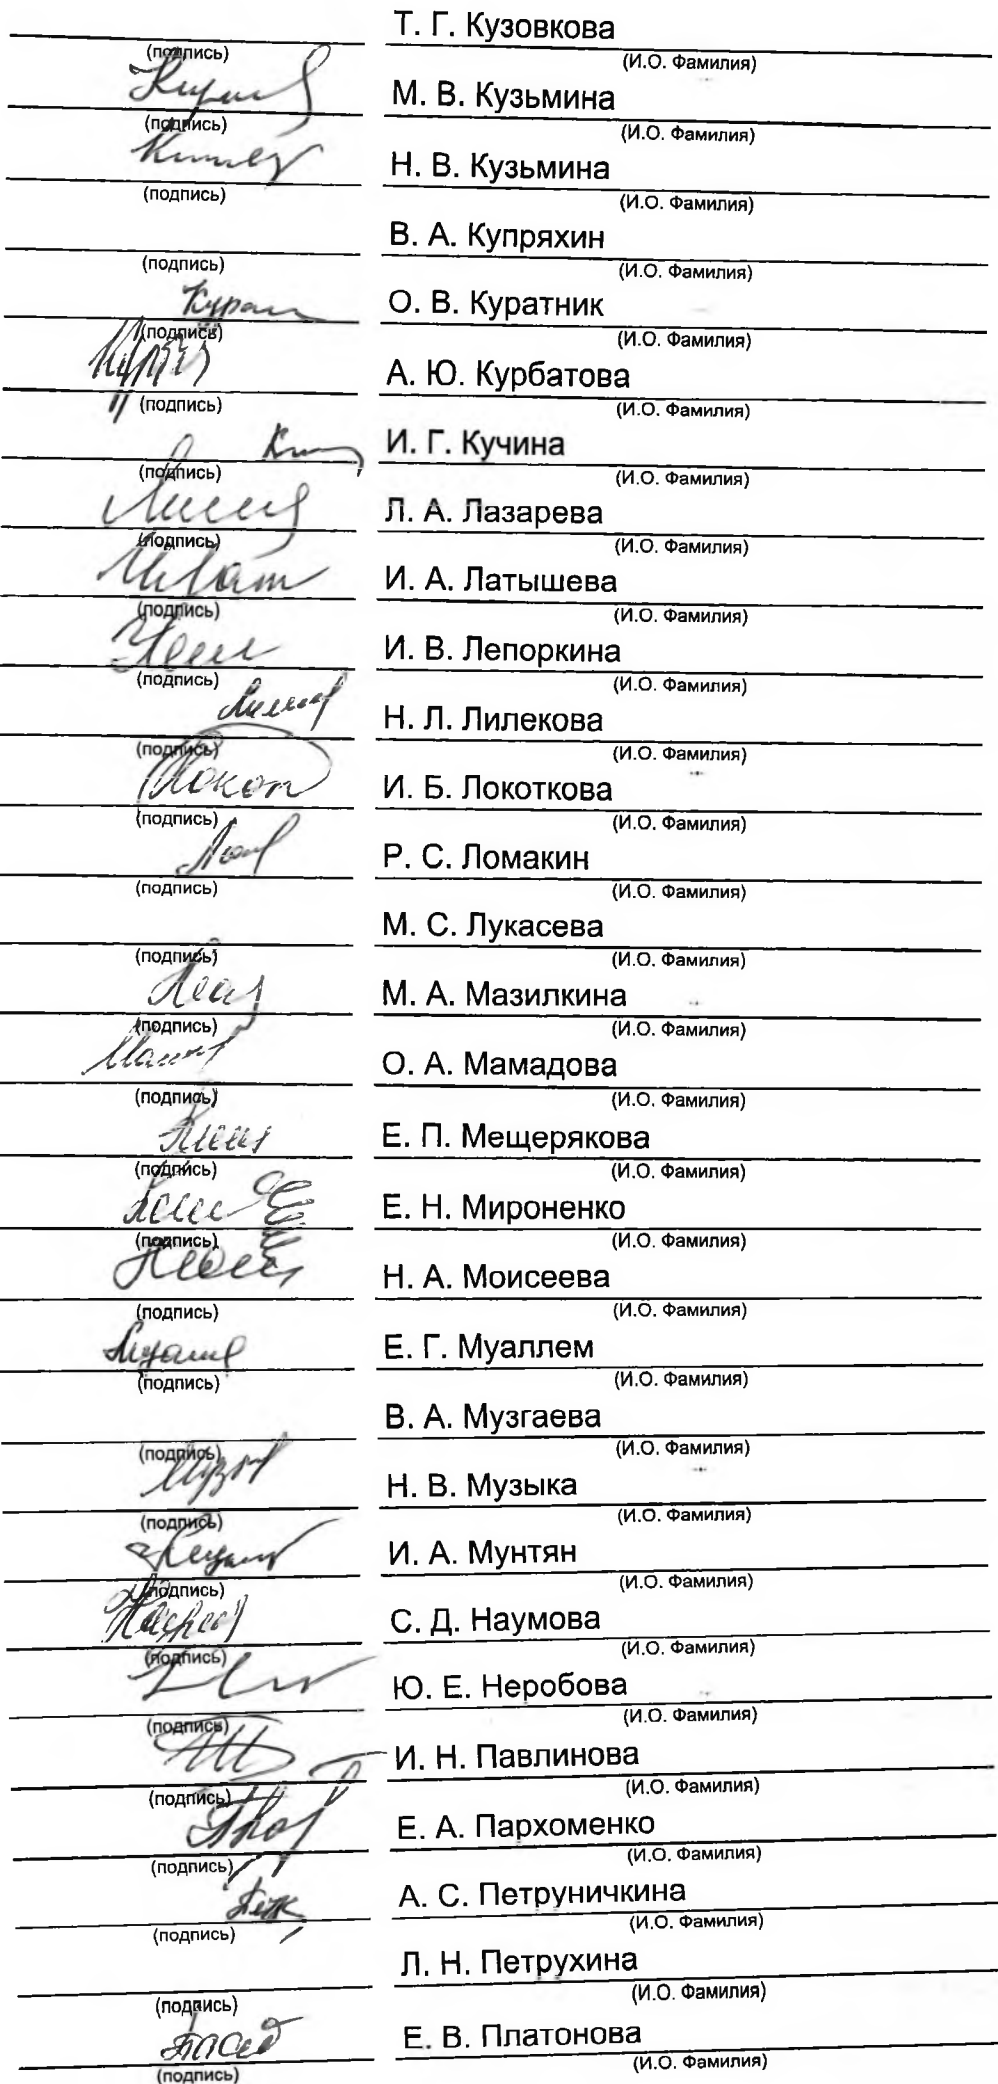 Т. Г. Кузовкова
(подпись) (И.О. Фамилия)
М. В. Кузьмина
(подпись) (И.О. Фамилия)
Н. В. Кузьмина
(подпись) (И.О. Фамилия)
В. А. Купряхин
(подпись) (И.О. Фамилия)
О. В. Куратник
(подпись) (И.О. Фамилия)
А. Ю. Курбатова
(подпись) (И.О. Фамилия)
И. Г. Кучина
(подпись) (И.О. Фамилия)
Л. А. Лазарева
(подпись) (И.О. Фамилия)
И. А. Латышева
(подпись) (И.О. Фамилия)
И. В. Лепоркина
(подпись) (И.О. Фамилия)
Н. Л. Лилекова
(подпись) (И.О. Фамилия)
И. Б. Локоткова
(подпись) (И.О. Фамилия)
Р. С. Ломакин
(подпись) (И.О. Фамилия)
М. С. Лукасева
(подпись) (И.О. Фамилия)
М. А. Мазилкина
(подпись) (И.О. Фамилия)
О. А. Мамадова
(подпись) (И.О. Фамилия)
Е. П. Мещерякова
(подпись) (И.О. Фамилия)
Е. Н. Мироненко
(подпись) (И.О. Фамилия)
Н. А. Моисеева
(подпись) (И.О. Фамилия)
Е. Г. Муаллем
(подпись) (И.О. Фамилия)
В. А. Музгаева
(подпись) (И.О. Фамилия)
Н. В. Музыка
(подпись) (И.О. Фамилия)
И. А. Мунтян
(подпись) (И.О. Фамилия)
С. Д. Наумова
(подпись) (И.О. Фамилия)
Ю. Е. Неробова
(подпись) (И.О. Фамилия)
И. Н. Павлинова
(подпись) (И.О. Фамилия)
Е. А. Пархоменко
(подпись) (И.О. Фамилия)
А. С. Петруничкина
(подпись) (И.О. Фамилия)
Л. Н. Петрухина
(подпись) (И.О. Фамилия)
Е. В. Платонова
(подпись) (И.О. Фамилия)